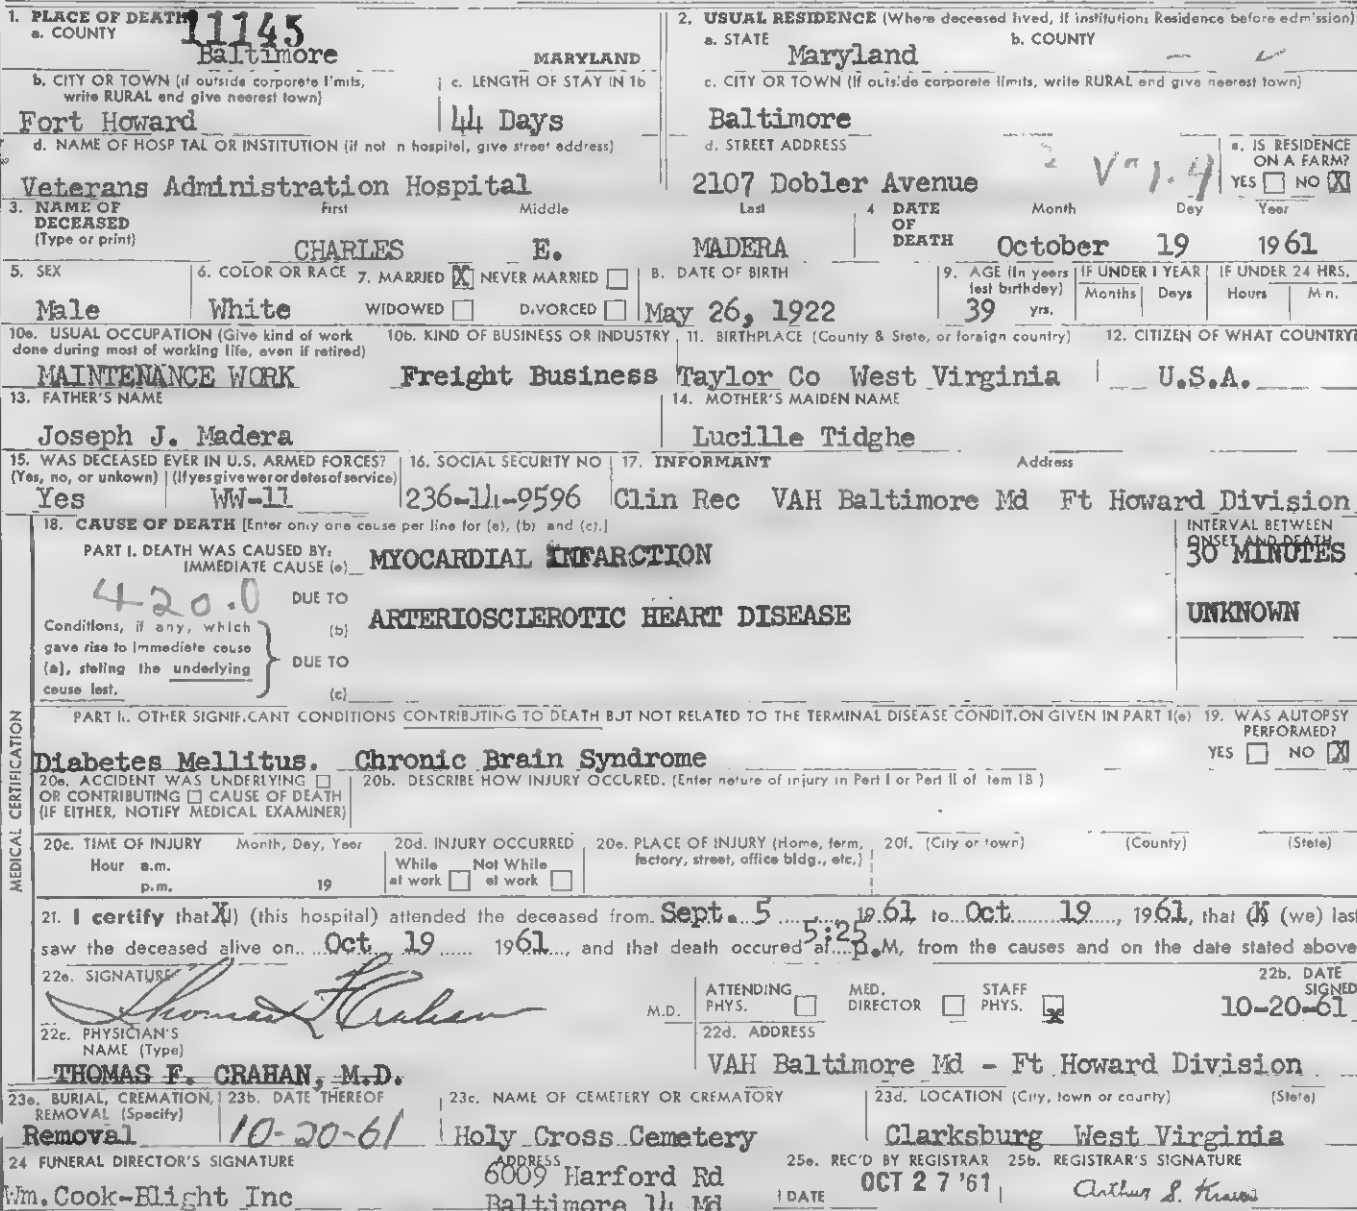 1. PLACE OF DEATH
11145
a. COUNTY
Baltimore MARYLAND
2. USUAL RESIDENCE (Where deceased lived, If institution: Residence before admission)
a. STATE b. COUNTY
Maryland
b. CITY OR TOWN (if outside corporate limits, write RURAL and give nearest town)
Fort Howard
c. LENGTH OF STAY IN 1b
44 Days
c. CITY OR TOWN (If outside corporate limits, write RURAL and give nearest town)
Baltimore
d. NAME OF HOSPITAL OR INSTITUTION (if not in hospital, give street address)
Veterans Administration Hospital
d. STREET ADDRESS
2107 Dobler Avenue
e. IS RESIDENCE ON A FARM?
YES NO X
3. NAME OF DECEASED (Type or print)
First Middle Last
CHARLES E. MADERA
4 DATE OF DEATH
Month Day Year
October 19 1961
5. SEX
Male
6. COLOR OR RACE
White
7. MARRIED X NEVER MARRIED
WIDOWED DIVORCED
8. DATE OF BIRTH
May 26, 1922
9. AGE (In years last birthday)
39 yrs.
IF UNDER 1 YEAR
Months Days
IF UNDER 24 HRS.
Hours Min.
10a. USUAL OCCUPATION (Give kind of work done during most of working life, even if retired)
MAINTENANCE WORK
10b. KIND OF BUSINESS OR INDUSTRY
Freight Business
11. BIRTHPLACE (County & State, or foreign country)
Taylor Co West Virginia
12. CITIZEN OF WHAT COUNTRY?
U.S.A.
13. FATHER'S NAME
Joseph J. Madera
14. MOTHER'S MAIDEN NAME
Lucille Tidghe
15. WAS DECEASED EVER IN U.S. ARMED FORCES?
(Yes, no, or unkown) (If yes give war or dates of service)
Yes WW-11
16. SOCIAL SECURITY NO
236-14-9596
17. INFORMANT Address
Clin Rec VAH Baltimore Md Ft Howard Division
18. CAUSE OF DEATH [Enter only one cause per line for (a), (b) and (c).]
INTERVAL BETWEEN ONSET AND DEATH
PART I. DEATH WAS CAUSED BY:
IMMEDIATE CAUSE (a) MYOCARDIAL INFARCTION 30 MINUTES
420.0
DUE TO
(b) ARTERIOSCLEROTIC HEART DISEASE UNKNOWN
Conditions, if any, which gave rise to immediate cause (a), stating the underlying cause last.
DUE TO
(c)
MEDICAL CERTIFICATION
PART II. OTHER SIGNIFICANT CONDITIONS CONTRIBUTING TO DEATH BUT NOT RELATED TO THE TERMINAL DISEASE CONDITION GIVEN IN PART 1(a)
Diabetes Mellitus. Chronic Brain Syndrome
19. WAS AUTOPSY PERFORMED?
YES NO X
20a. ACCIDENT WAS UNDERLYING
OR CONTRIBUTING CAUSE OF DEATH
(IF EITHER, NOTIFY MEDICAL EXAMINER)
20b. DESCRIBE HOW INJURY OCCURED. (Enter nature of injury in Part I or Part II of item 18)
20c. TIME OF INJURY Month, Day, Year
Hour a.m.
p.m. 19
20d. INJURY OCCURRED
While at work Not While at work
20e. PLACE OF INJURY (Home, farm, factory, street, office bldg., etc.)
20f. (City or town) (County) (State)
21. I certify that X(I) (this hospital) attended the deceased from Sept. 5 1961 to Oct 19, 1961, that (X) (we) last
saw the deceased alive on Oct 19 1961, and that death occured at 5:25 p.M, from the causes and on the date stated above
22a. SIGNATURE
Thomas F Crahan M.D.
ATTENDING PHYS. MED. DIRECTOR STAFF PHYS. X
22b. DATE SIGNED
10-20-61
22c. PHYSICIAN'S NAME (Type)
THOMAS F. CRAHAN, M.D.
22d. ADDRESS
VAH Baltimore Md - Ft Howard Division
23a. BURIAL, CREMATION, REMOVAL (Specify)
Removal
23b. DATE THEREOF
10-20-61
23c. NAME OF CEMETERY OR CREMATORY
Holy Cross Cemetery
23d. LOCATION (City, town or county) (State)
Clarksburg West Virginia
24 FUNERAL DIRECTOR'S SIGNATURE
Wm. Cook-Blight Inc
ADDRESS
6009 Harford Rd
Baltimore 14 Md
25a. REC'D BY REGISTRAR
DATE OCT 27 '61
25b. REGISTRAR'S SIGNATURE
Arthur S.